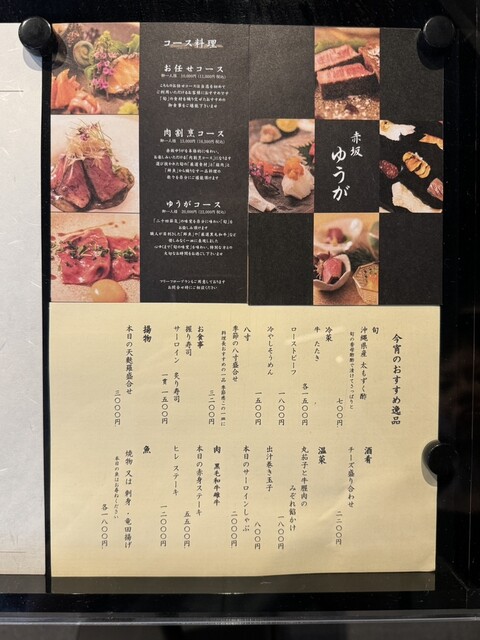 コース料理
お任せコース
御一人様 10,000円 (11,000円 税込)
肉割烹コース
御一人様 15,000円
ゆうがコース
御一人様 20,000円 (22,000円 税込)
お問合せ時にご相談ください
赤坂
ゆうが
今宵のおすすめ逸品
旬
沖縄県産 太もずく酢
七〇〇円
冷菜
牛 たたき
各一五〇〇円
ローストビーフ
一八〇〇円
冷やしそうめん
一五〇〇円
八寸
季節の八寸盛合せ
三二〇〇円
お食事
握り寿司
サーロイン 炙り寿司
一貫 一五〇〇円
揚物
本日の天麩羅盛合せ
三〇〇〇円
酒肴
チーズ盛り合わせ
二二〇〇円
温菜
丸茄子と牛腹肉の
みぞれ餡かけ
一八〇〇円
出汁巻き玉子
八〇〇円
本日のサーロインしゃぶ
二〇〇〇円
肉 黒毛和牛雌牛
本日の赤身ステーキ
五五〇〇円
ヒレステーキ
一二〇〇〇円
魚
焼物 又は 刺身 ・ 竜田揚げ
本日の魚はお尋ねください
各一八〇〇円